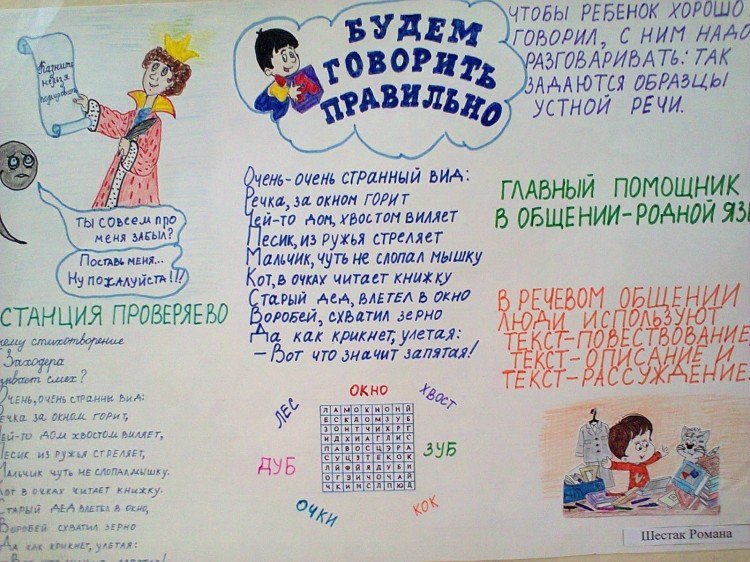 Казнить
нельзя
помиловать
БУДЕМ
ГОВОРИТЬ
ПРАВИЛЬНО
ЧТОБЫ РЕБЕНОК ХОРОШО
ГОВОРИЛ, С НИМ НАДО
РАЗГОВАРИВАТЬ: ТАК
ЗАДАЮТСЯ ОБРАЗЦЫ
УСТНОЙ РЕЧИ.
ТЫ СОВСЕМ ПРО
МЕНЯ ЗАБЫЛ?
ПОСТАВЬ МЕНЯ...
НУ ПОЖАЛУЙСТА!!!
ОЧЕНЬ-ОЧЕНЬ СТРАННЫЙ ВИД:
РЕЧКА, ЗА ОКНОМ ГОРИТ
ЧЕЙ-ТО ДОМ, ХВОСТОМ ВИЛЯЕТ
ПЕСИК, ИЗ РУЖЬЯ СТРЕЛЯЕТ
МАЛЬЧИК, ЧУТЬ НЕ СЛОПАЛ МЫШКУ
КОТ, В ОЧКАХ ЧИТАЕТ КНИЖКУ
СТАРЫЙ ДЕД, ВЛЕТЕЛ В ОКНО
ВОРОБЕЙ, СХВАТИЛ ЗЕРНО
ДА КАК КРИКНЕТ, УЛЕТАЯ:
– ВОТ ЧТО ЗНАЧИТ ЗАПЯТАЯ!
ГЛАВНЫЙ ПОМОЩНИК
В ОБЩЕНИИ-РОДНОЙ ЯЗ
В РЕЧЕВОМ ОБЩЕНИИ
ЛЮДИ ИСПОЛЬЗУЮТ
ТЕКСТ-ПОВЕСТВОВАНИЕ
ТЕКСТ-ОПИСАНИЕ И
ТЕКСТ-РАССУЖДЕНИЕ.
СТАНЦИЯ ПРОВЕРЯЕВО
чему стихотворение
Заходера
ывает смех?
ОЧЕНЬ, ОЧЕНЬ СТРАННЫ ВИД:
РЕЧКА ЗА ОКНОМ ГОРИТ,
ЧЕЙ-ТО ДОМ ХВОСТОМ ВИЛЯЕТ,
ПЕСИК ИЗ РУЖЬЯ СТРЕЛЯЕТ,
МАЛЬЧИК ЧУТЬ НЕ СЛОПАЛ МЫШКУ.
КОТ В ОЧКАХ ЧИТАЕТ КНИЖКУ.
СТАРЫЙ ДЕД ВЛЕТЕЛ В ОКНО,
ВОРОБЕЙ СХВАТИЛ ЗЕРНО
ДА КАК КРИКНЕТ, УЛЕТАЯ:
ОКНО
ЛЕС
ХВОСТ
ДУБ
ЗУБ
ОЧКИ
КОК
Шестак Романа